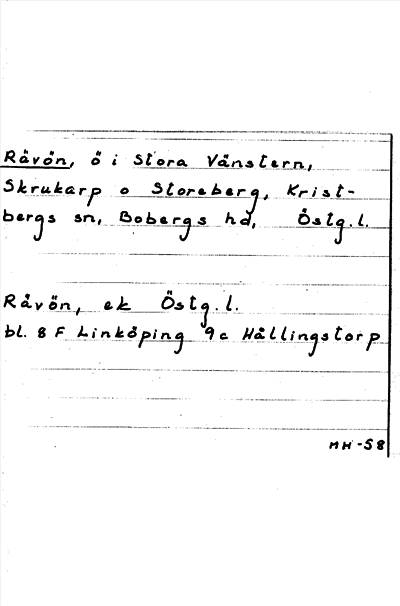 Råvön, ö i Stora Vänstern,
Skrukarp o Storeberg, Krist-
bergs sn, Bobergs hd, Östg.l.
Råvön, ek Östg.l.
bl. 8 F Linköping 9c Hällingstorp
MH-58